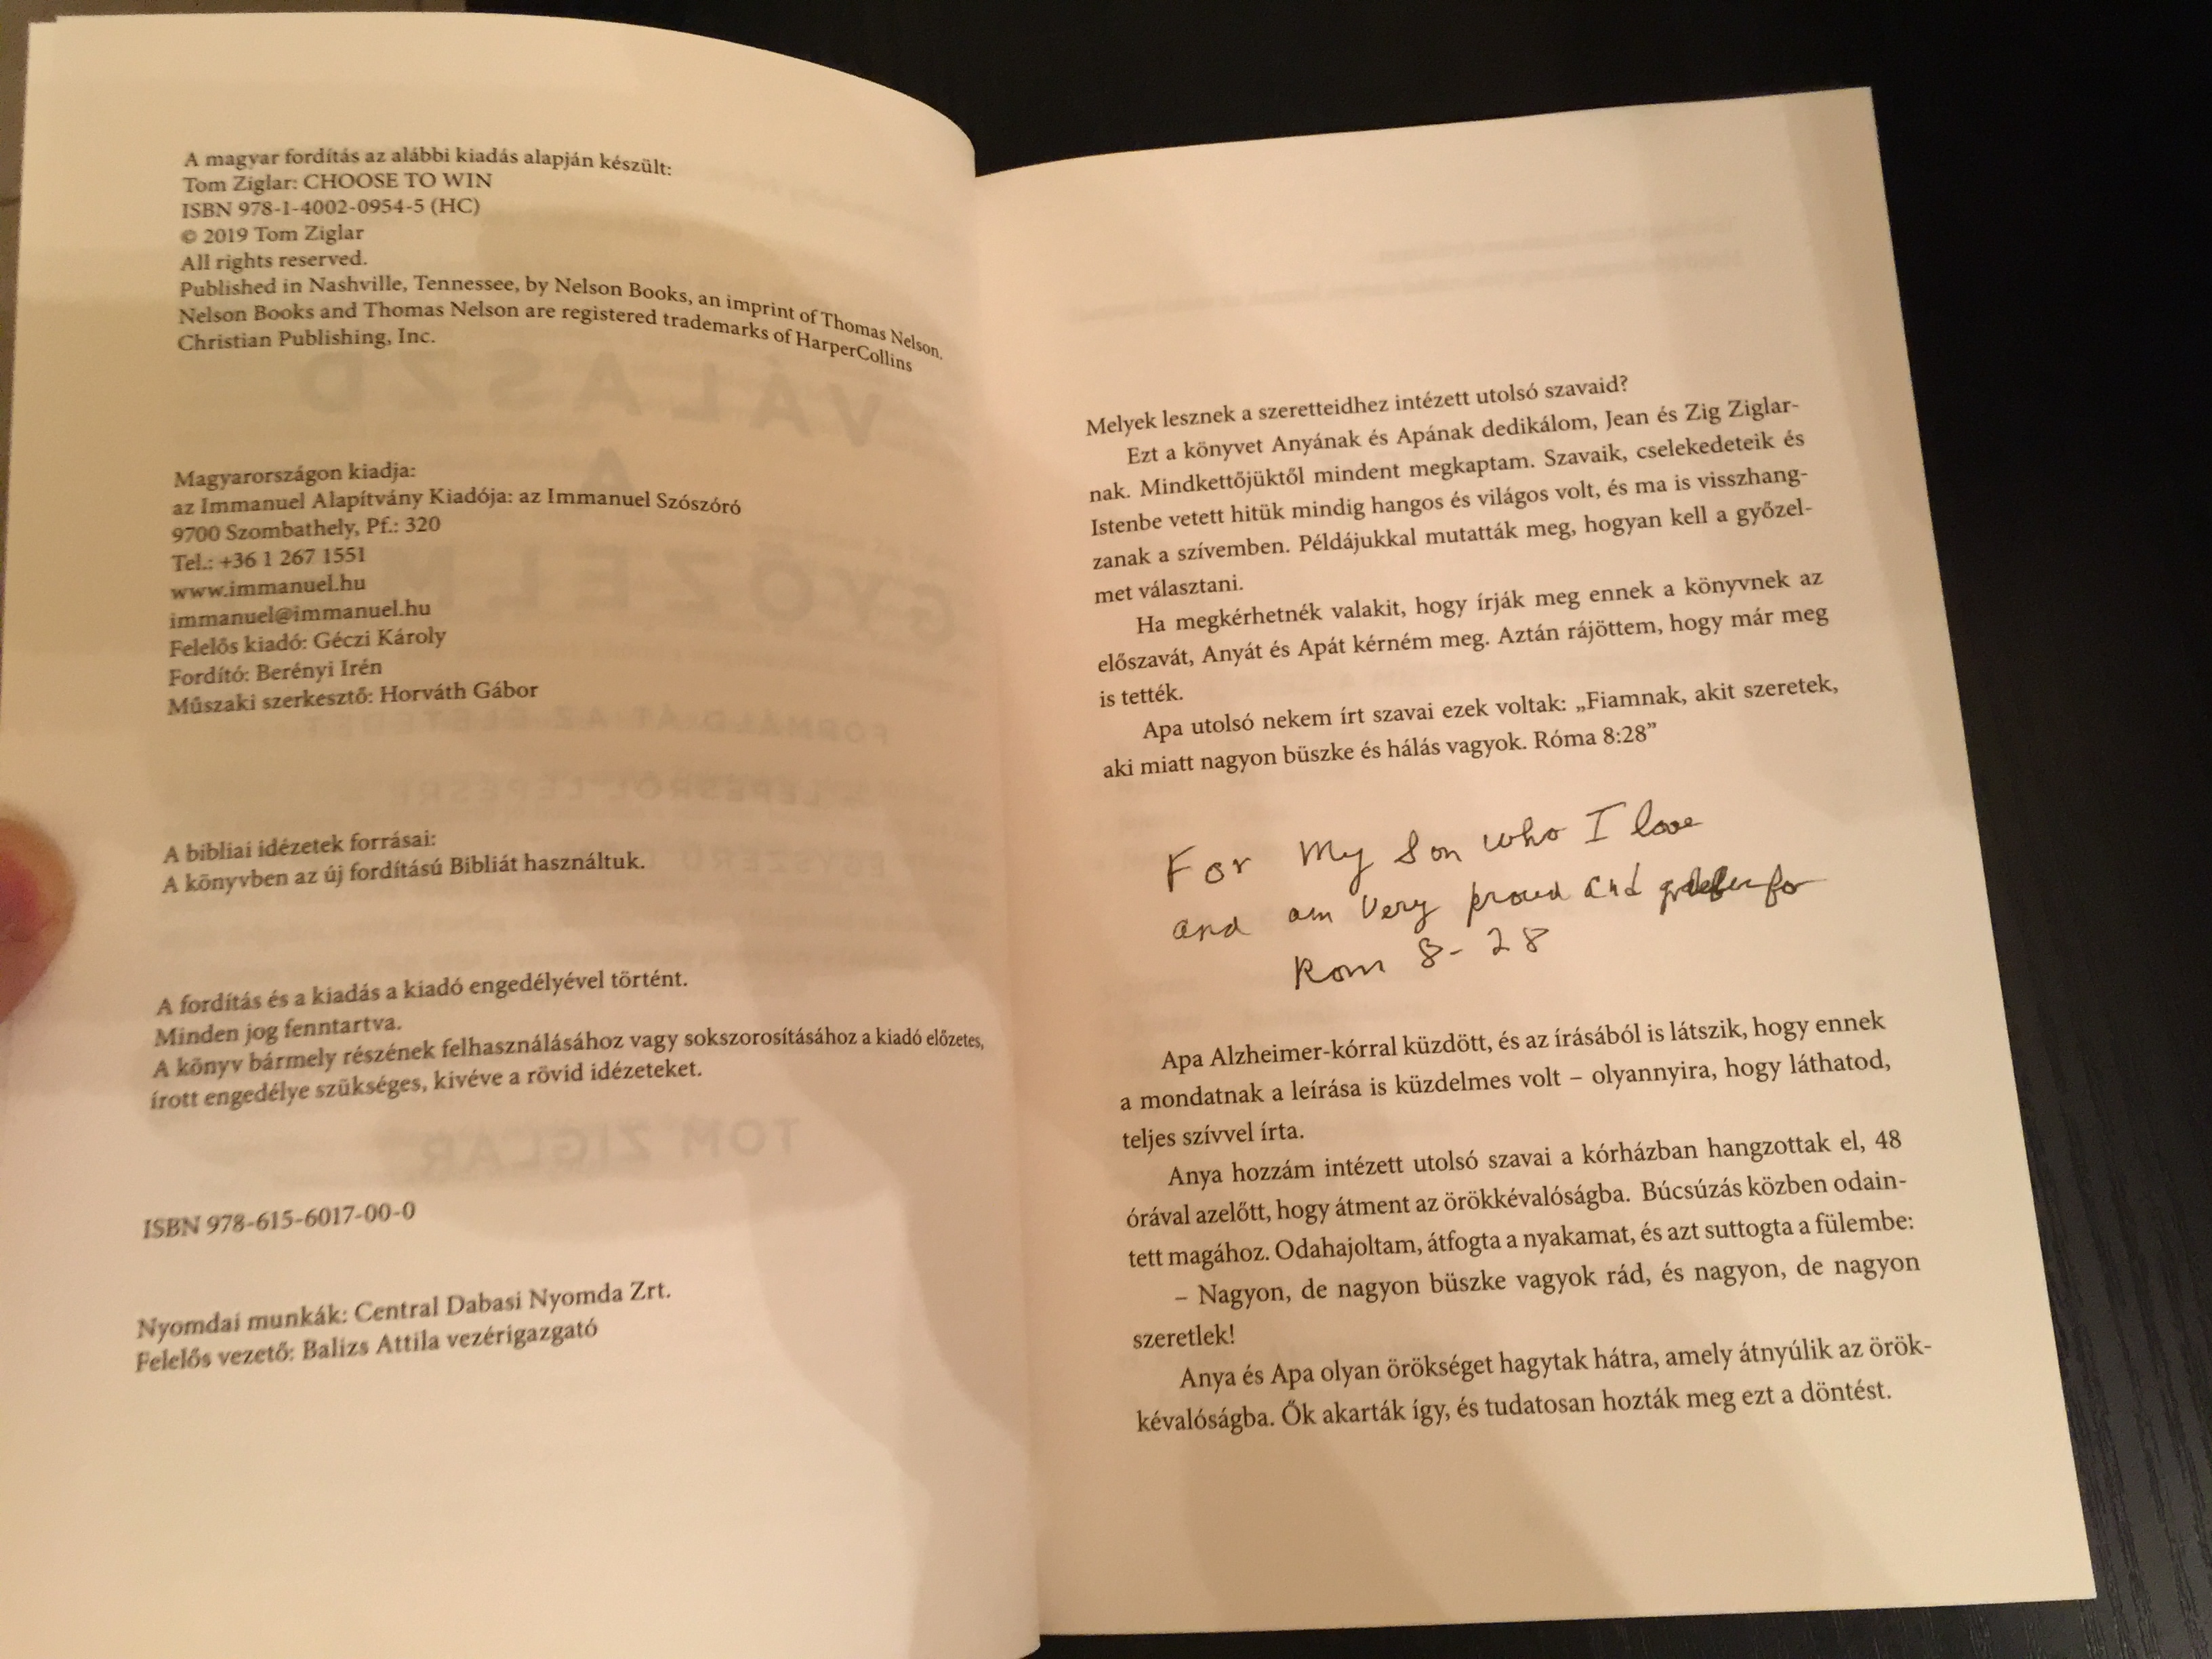 A magyar fordítás az alábbi kiadás alapján készült:
Tom Ziglar: CHOOSE TO WIN
ISBN 978-1-4002-0954-5 (HC)
© 2019 Tom Ziglar
All rights reserved.
Published in Nashville, Tennessee, by Nelson Books, an imprint of Thomas Nelson.
Nelson Books and Thomas Nelson are registered trademarks of HarperCollins
Christian Publishing, Inc.
Magyarországon kiadja:
az Immanuel Alapítvány Kiadója: az Immanuel Szószóró
9700 Szombathely, Pf.: 320
Tel.: +36 1 267 1551
www.immanuel.hu
immanuel@immanuel.hu
Felelős kiadó: Géczi Károly
Fordító: Berényi Irén
Műszaki szerkesztő: Horváth Gábor
A bibliai idézetek forrásai:
A könyvben az új fordítású Bibliát használtuk.
A fordítás és a kiadás a kiadó engedélyével történt.
Minden jog fenntartva.
A könyv bármely részének felhasználásához vagy sokszorosításához a kiadó előzetes,
írott engedélye szükséges, kivéve a rövid idézeteket.
ISBN 978-615-6017-00-0
Nyomdai munkák: Central Dabasi Nyomda Zrt.
Felelős vezető: Balizs Attila vezérigazgató
Melyek lesznek a szeretteidhez intézett utolsó szavaid?
Ezt a könyvet Anyának és Apának dedikálom, Jean és Zig Ziglar-
nak. Mindkettőjüktől mindent megkaptam. Szavaik, cselekedeteik és
Istenbe vetett hitük mindig hangos és világos volt, és ma is visszhang-
zanak a szívemben. Példájukkal mutatták meg, hogyan kell a győzel-
met választani.
Ha megkérhetnék valakit, hogy írják meg ennek a könyvnek az
előszavát, Anyát és Apát kérném meg. Aztán rájöttem, hogy már meg
is tették.
Apa utolsó nekem írt szavai ezek voltak: „Fiamnak, akit szeretek,
aki miatt nagyon büszke és hálás vagyok. Róma 8:28”
For My Son who I love
and am Very proud and for
Rom 8-28
Apa Alzheimer-kórral küzdött, és az írásából is látszik, hogy ennek
a mondatnak a leírása is küzdelmes volt – olyannyira, hogy láthatod,
teljes szívvel írta.
Anya hozzám intézett utolsó szavai a kórházban hangzottak el, 48
órával azelőtt, hogy átment az örökkévalóságba. Búcsúzás közben odain-
tett magához. Odahajoltam, átfogta a nyakamat, és azt suttogta a fülembe:
– Nagyon, de nagyon büszke vagyok rád, és nagyon, de nagyon
szeretlek!
Anya és Apa olyan örökséget hagytak hátra, amely átnyúlik az örök-
kévalóságba. Ők akarták így, és tudatosan hozták meg ezt a döntést.